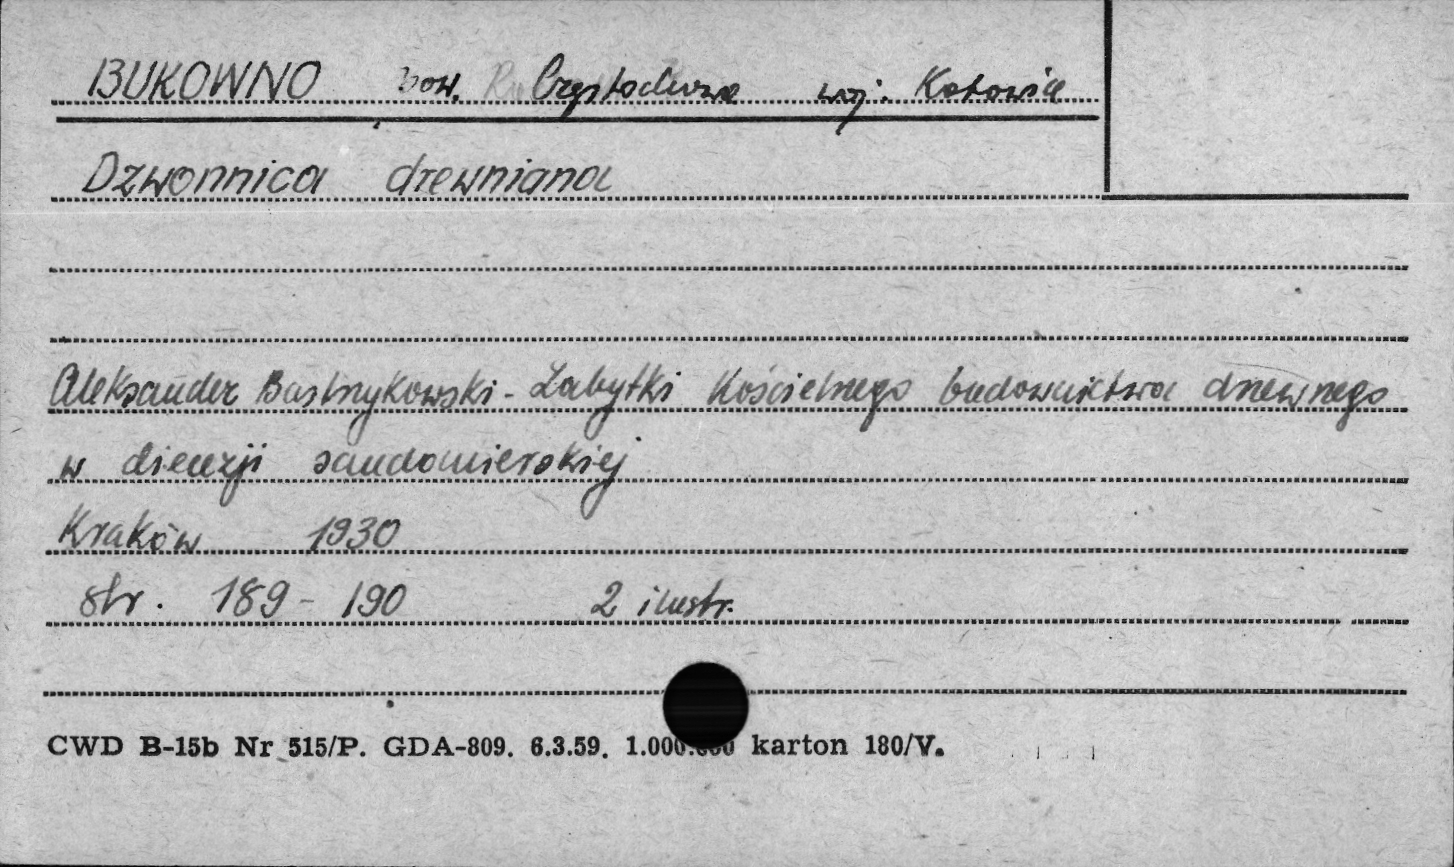 BUKOWNO pow. Częstochowa woj. Katowice
Dzwonnica drewniana
Aleksander Bastrzykowski - Zabytki Kościelnego budownictwa drzewnego
w diecezji sandomierskiej
Kraków 1930
str. 189-190 2 ilustr.
CWD B-15b Nr 515/P. GDA-809. 6.3.59. 1.000.000 karton 180/V.